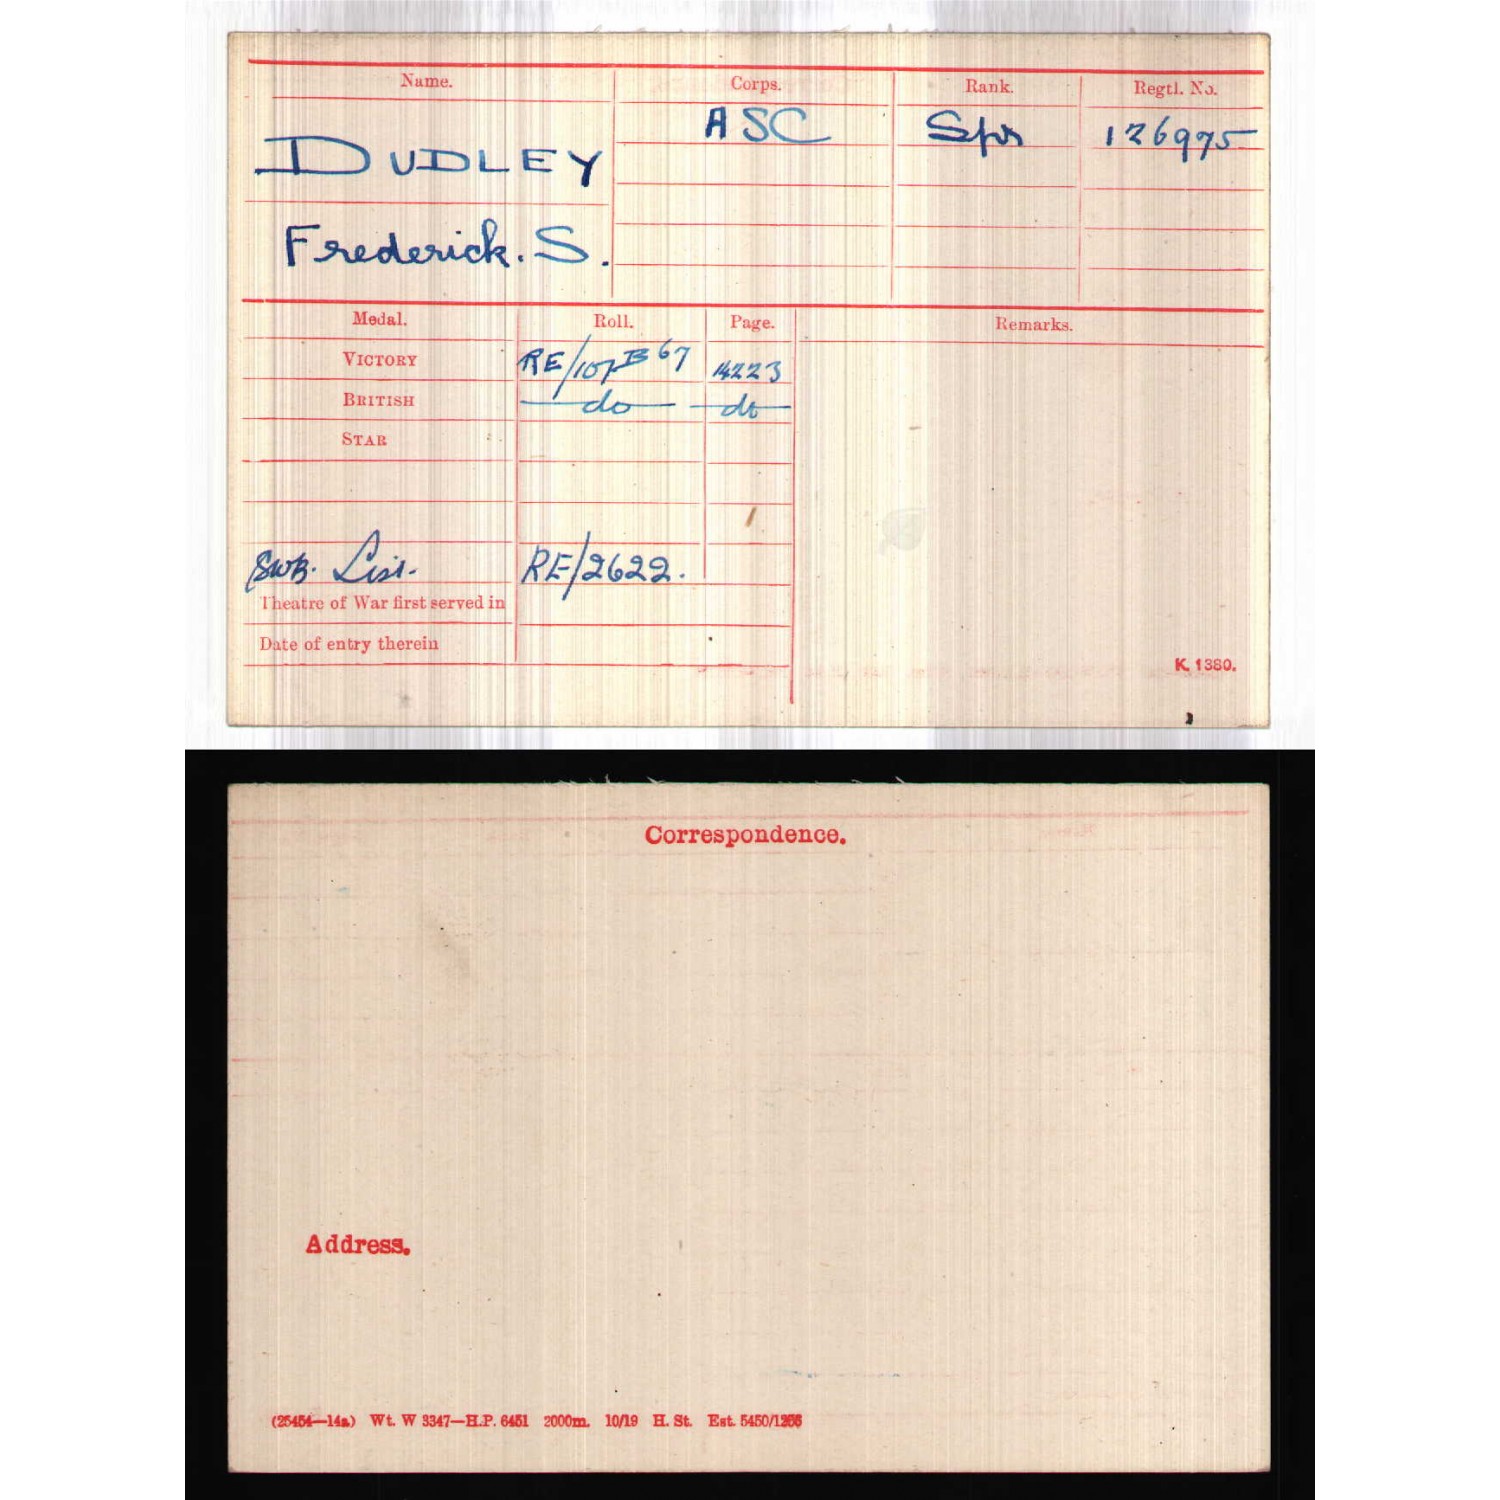 Name. Corps. Rank. Regtl. No.
ASC Spr 126975
DUDLEY
Frederick. S.
Medal. Roll. Page. Remarks.
VICTORY RE/107B67 14223
BRITISH do do
STAR
SWB. List. RE/2622.
Theatre of War first served in
Date of entry therein
K. 1380.
Correspondence.
Address.
(25454—14a) Wt. W 3347—H.P. 6451 2000m. 10/19 H. St. Est. 5450/1256